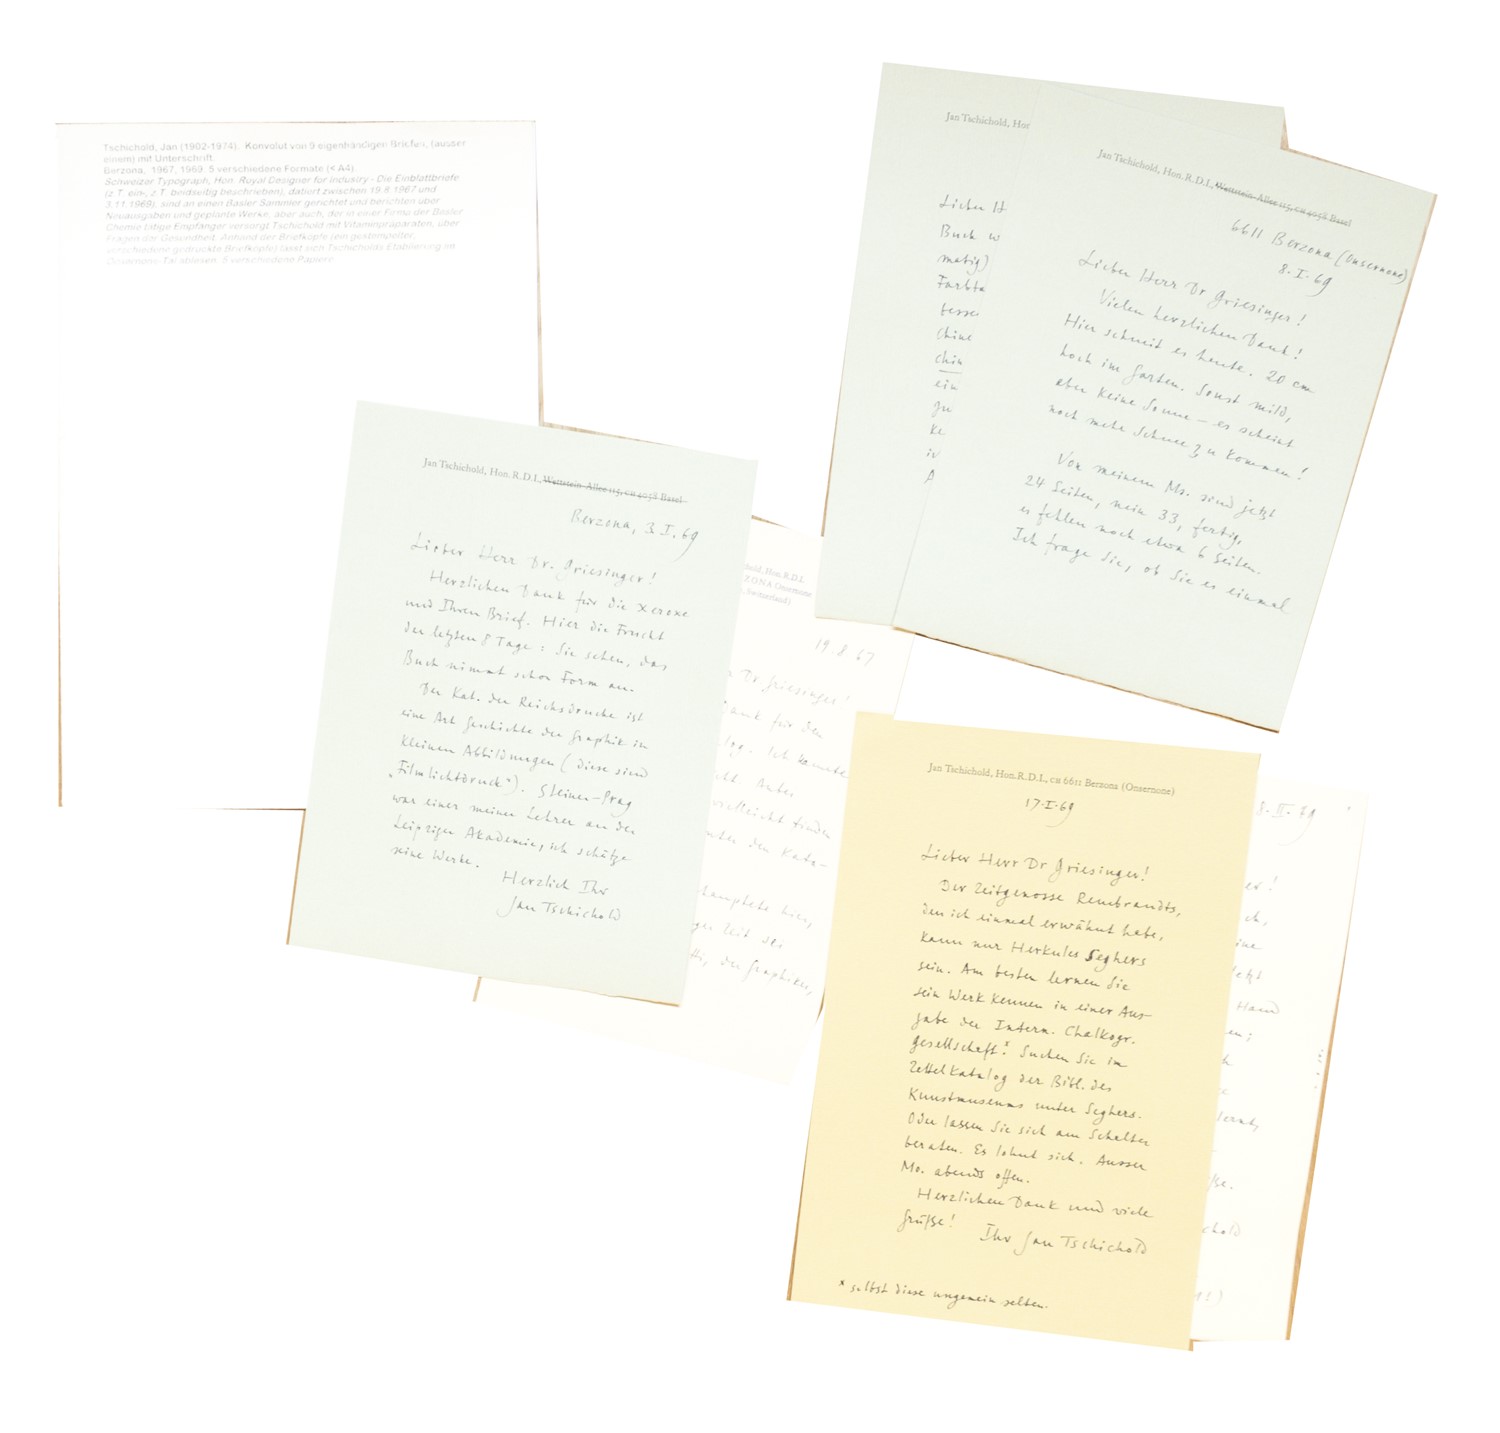 Tschichold, Jan (1902-1974). Konvolut von 9 eigenhändigen Briefen, (ausser
einem) mit Unterschrift.
Berzona, 1967, 1969. 5 verschiedene Formate (< A4)
Schweizer Typograph, Hon. Royal Designer for Industry - Die Einblattbriefe
(z.T. ein-, z.T. beidseitig beschrieben), datiert zwischen 19.8.1967 und
3.11.1969), sind an einen Basler Sammler gerichtet und berichten über
Neuausgaben und geplante Werke, aber auch, der in einer Firma der Basler
Chemie tätige Empfänger versorgt Tschichold mit Vitaminpräparaten, über
Fragen der Gesundheit. Anhand der Briefköpfe (ein gestempelter,
verschiedene gedruckte Briefköpfe) lässt sich Tschicholds Etablierung im
Onsernone-Tal ablesen. 5 verschiedene Papiere
Jan Tschichold, Hon
Lieber H
Buch w
mäßig)
Farbta
besse
Chine
chin
ein
ke
Jan Tschichold, Hon. R.D.I., Wettstein-Allee 115, CH 4058 Basel
6611 Berzona (Onsernone)
8.I.69
Lieber Herr Dr Griesinger!
Vielen herzlichen Dank!
Hier schneit es heute. 20 cm
hoch im Garten. Sonst mild,
aber keine Sonne – es scheint
noch mehr Schnee zu kommen!
Von meinem Ms. sind jetzt
24 Seiten, nein 33, fertig,
es fehlen noch etwa 6 Seiten.
Ich frage Sie, ob Sie es einmal
Jan Tschichold, Hon. R.D.I., Wettstein-Allee 115, CH 4058 Basel
Berzona, 3.I.69
Lieber Herr Dr. Griesinger!
Herzlichen Dank für die Xeroxe
und Ihren Brief. Hier die Frucht
der letzten 8 Tage: Sie sehen, das
Buch nimmt schon Form an.
Der Kat. der Reichsdrucke ist
eine Art Geschichte der Graphik in
kleinen Abbildungen (diese sind
„Filmlichtdruck"). Steiner-Prag
war einer meiner Lehrer an der
Leipziger Akademie, ich schätze
seine Werke.
Herzlich Ihr
Jan Tschichold
hold, Hon.R.D.I.
ZONA Onsernone
Switzerland)
19.8.67
Dr Griesinger!
Dank für den
log. Ich kannte
cht. Unter
vielleicht finden
unter den Kata-
kamplete hier,
ger Zeit sei
der Graphiker,
Jan Tschichold, Hon.R.D.I., CH 6611 Berzona (Onsernone)
17.I.69
Lieber Herr Dr Griesinger!
Der Zeitgenosse Rembrandts,
den ich einmal erwähnt habe,
kann nur Herkules Seghers
sein. Am besten lernen Sie
sein Werk kennen in einer Aus-
gabe der Intern. Chalkogr.
gesellschaft.x Suchen Sie im
Zettelkatalog der Bibl. des
Kunstmuseums unter Seghers.
Oder lassen Sie sich am Schalter
beraten. Es lohnt sich. Ausser
Mo. abends offen.
Herzlichen Dank und viele
Grüße!
Ihr Jan Tschichold
x selbst diese ungemein selten.
er!
ch,
ine
letzt
Hand
en;
ße.
chold